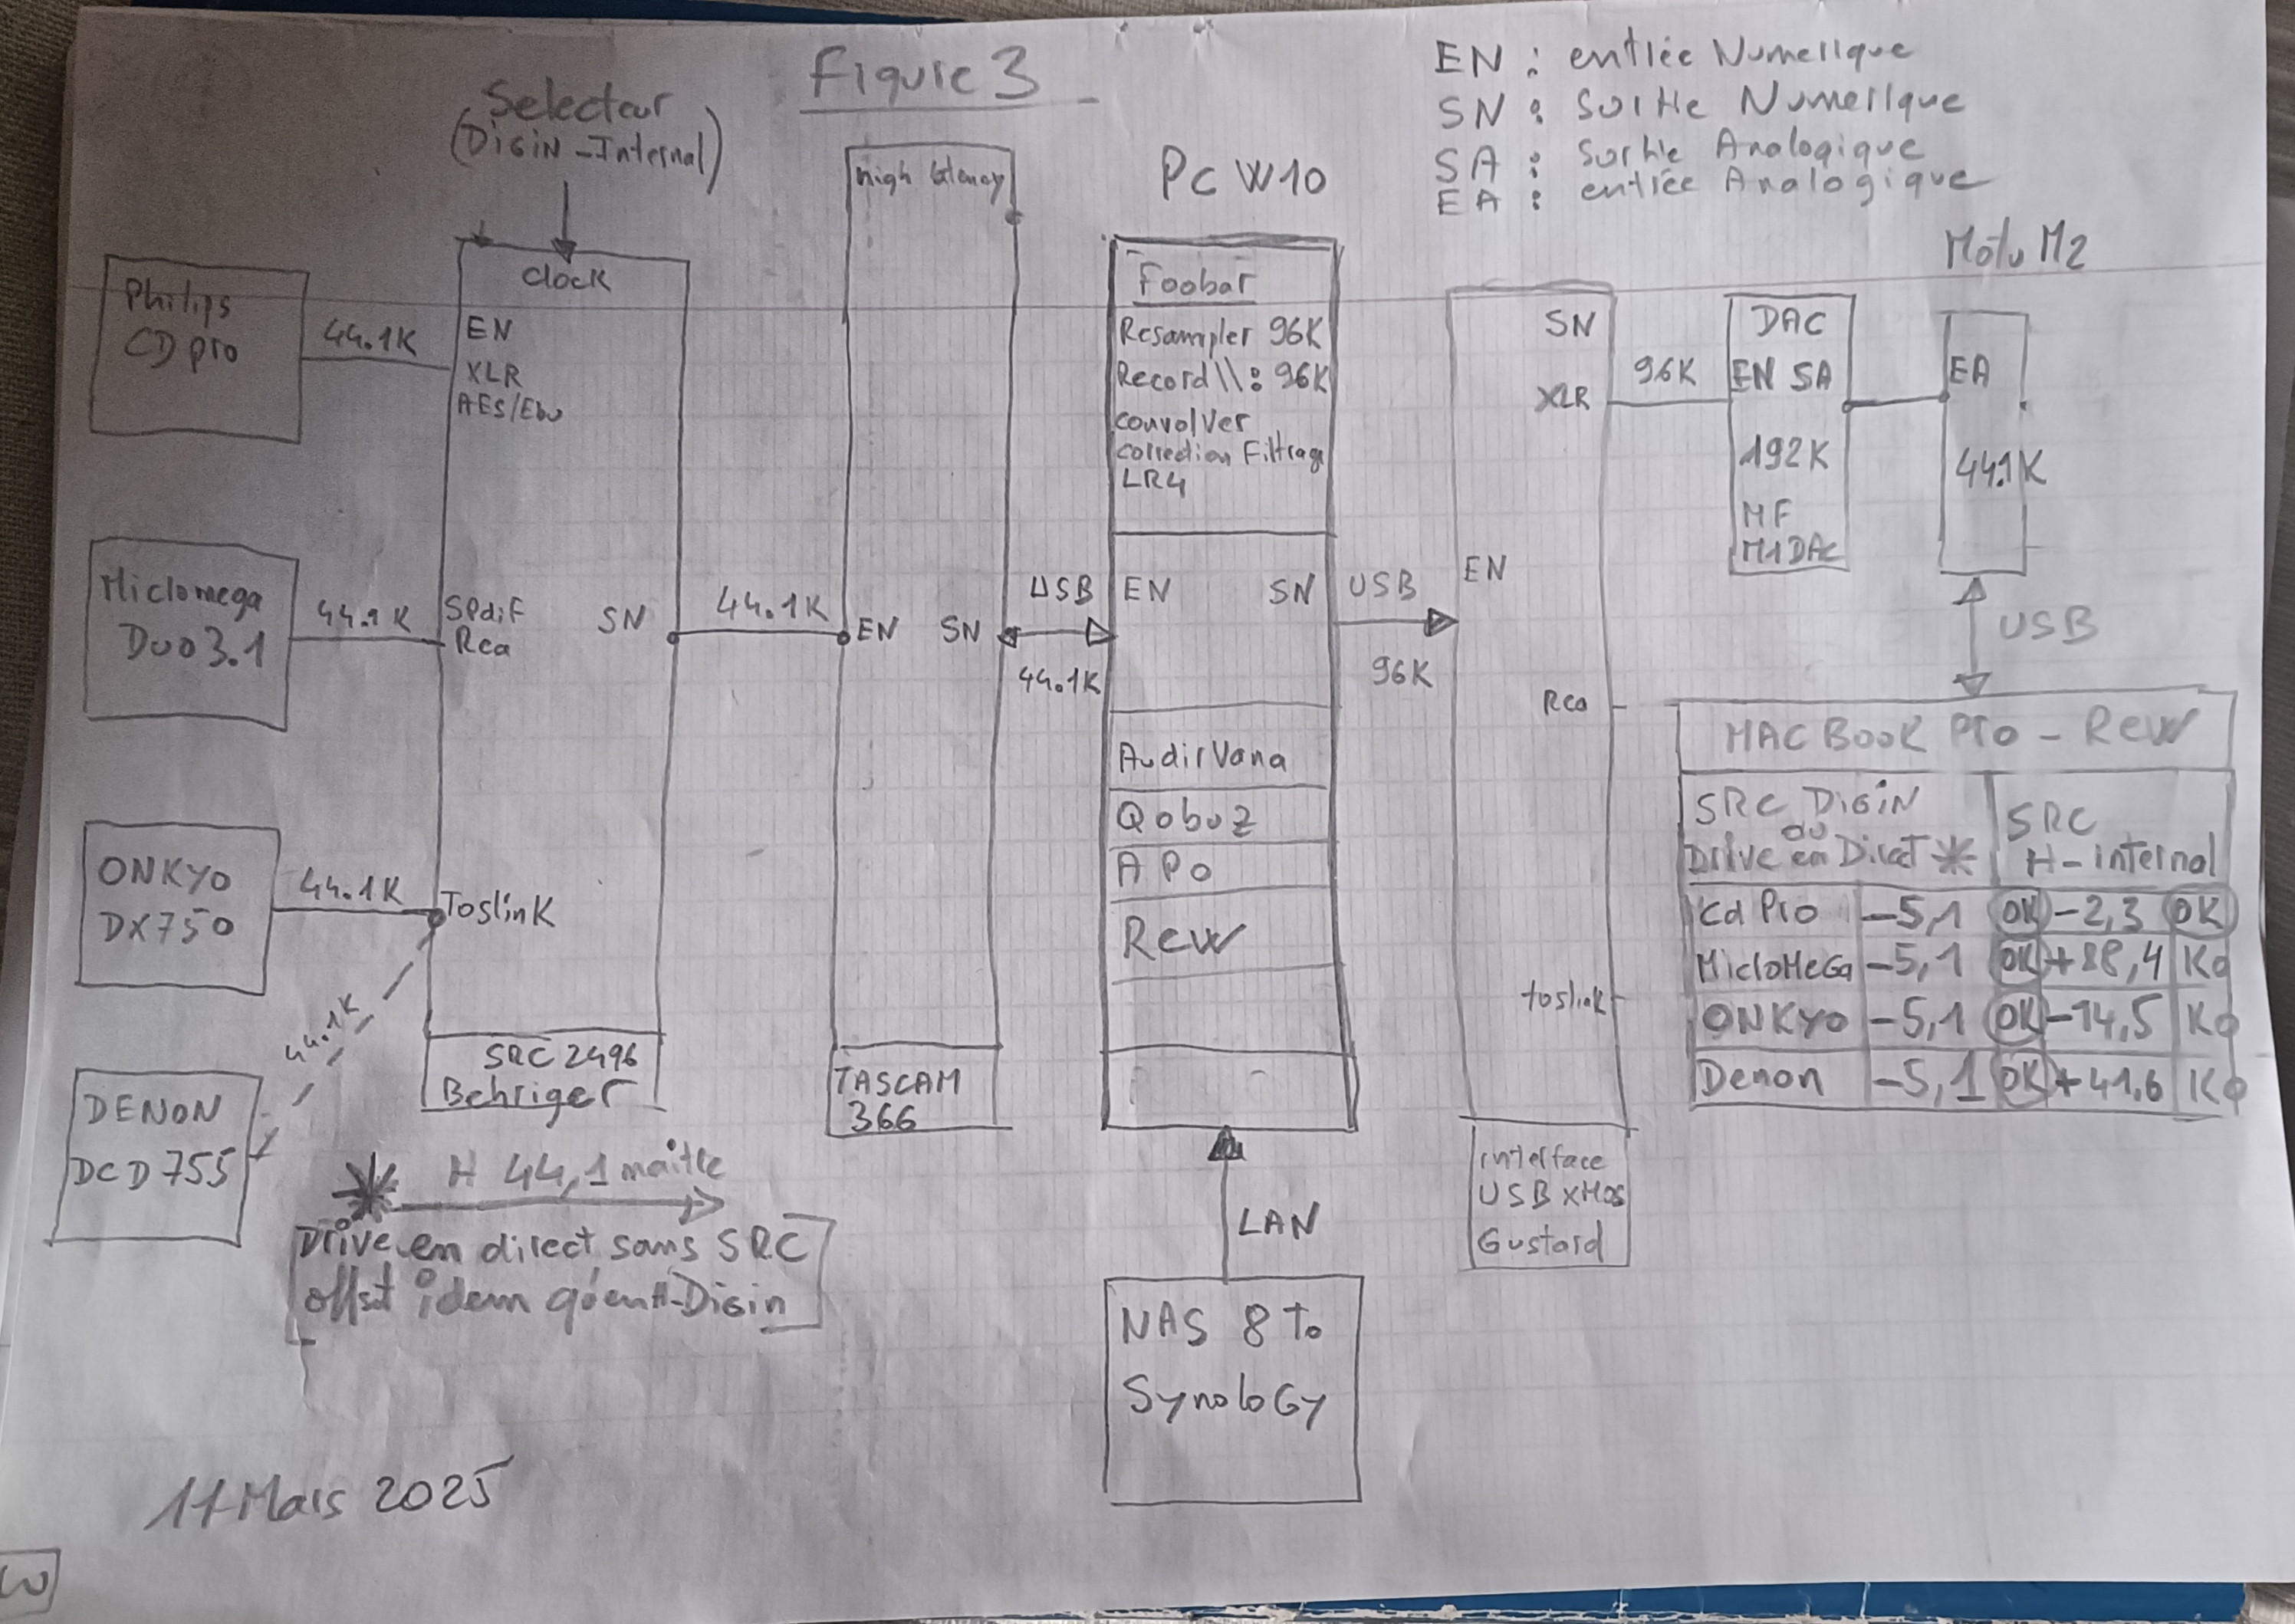 Figure 3
EN : entrée Numerique
SN : Sortie Numerique
SA : Sortie Analogique
EA : entrée Analogique
Selecteur
(DiGiN-Internal)
Philips
CD pro
44.1K
Micromega
Duo 3.1
44.1K
ONKYO
DX750
44.1K
DENON
DCD 755
44.1K
Clock
EN
XLR
AES/Ebu
SPdiF
Rca
SN
ToslinK
SRC 2496
Behriger
44.1K
High latency
EN SN
TASCAM
366
USB
44.1K
Pc W10
Foobar
Resampler 96K
Record \\: 96K
convolver
correction Filtrage
LR4
EN SN
AudirVana
Qobuz
APo
Rew
LAN
NAS 8 To
SynoloGy
USB
96K
EN
SN
XLR
Rca
toslink
interface
USB xMos
Gustard
96K
DAC
EN SA
192K
MF
M1DAC
Motu M2
EA
44.1K
USB
MACBooK Pro - Rew
SRC DiGiN
ou
Drive en Direct *
SRC
H-internal
Cd Pro -5,1 OK -2,3 OK
MicroMeGa -5,1 OK +88,4 Ko
ONKYO -5,1 OK -14,5 Ko
Denon -5,1 OK +41.6 Ko
* H 44,1 maître
Drive en direct sans SRC
offset idem qu'en H-DiGin
11 Mars 2025
3